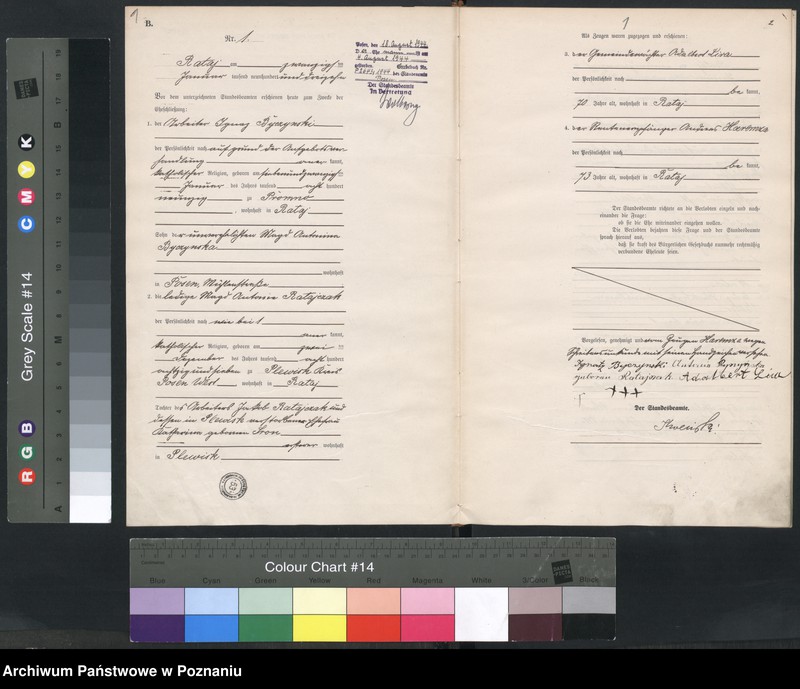 B.
Nr. 1.
Rataj am zwanzigsten
Januar tausend neunhundert und dreizehn
Vor dem unterzeichneten Standesbeamten erschienen heute zum Zwecke der
Eheschließung:
1. der Arbeiter Ignaz Byczynski
der Persönlichkeit nach auf Grund der Aufgebotsver-
handlung anerkannt,
katholischer Religion, geboren am
Januar des Jahres tausend acht hundert
neunzig zu Promno
, wohnhaft in Rataj
Sohn der unverehelichten Magd Antonina
Byczynska
wohnhaft
in Posen, Mühlenstraße
2. die ledige Magd Antonie Ratajczak
der Persönlichkeit nach wie bei 1
anerkannt,
katholischer Religion, geboren am zwei
Dezember des Jahres tausend acht hundert
achtzig und sieben zu Plewisk Kreis
Posen West, wohnhaft in Rataj
Tochter des Arbeiters Jakob Ratajczak und
dessen in Plewisk verstorbenen Ehefrau
Katharina geborenen
ersterer wohnhaft
in Plewisk
Posen, den 18 August 1944
4. August 1944
gestorben
der Standesamts
Posen
Der Standesbeamte
In Vertretung
1
2
Als Zeugen waren zugezogen und erschienen:
3. der Gemeindewächter Adalbert Liva
der Persönlichkeit nach
bekannt,
70 Jahre alt, wohnhaft in Rataj
4. der Rentenempfänger Andreas
der Persönlichkeit nach
bekannt,
73 Jahre alt, wohnhaft in Rataj
Der Standesbeamte richtete an die Verlobten einzeln und nach-
einander die Frage:
ob sie die Ehe miteinander eingehen wollen.
Die Verlobten bejahten diese Frage und der Standesbeamte
sprach hierauf aus,
daß sie kraft des Bürgerlichen Gesetzbuchs nunmehr rechtmäßig
verbundene Eheleute seien.
Vorgelesen, genehmigt und vom Zeugen wegen
Schreibensunkunde mit seinem Handzeichen versehen
Ignatz Byczynski Antonie
geboren Ratajczak Adalbert Liva
+++
Der Standesbeamte.
Grey Scale #14
R G B
C M Y K
A
M
B
Colour Chart #14
Blue Cyan Green Yellow Red Magenta White 3/Color Black
DANES PICTA
Archiwum Państwowe w Poznaniu